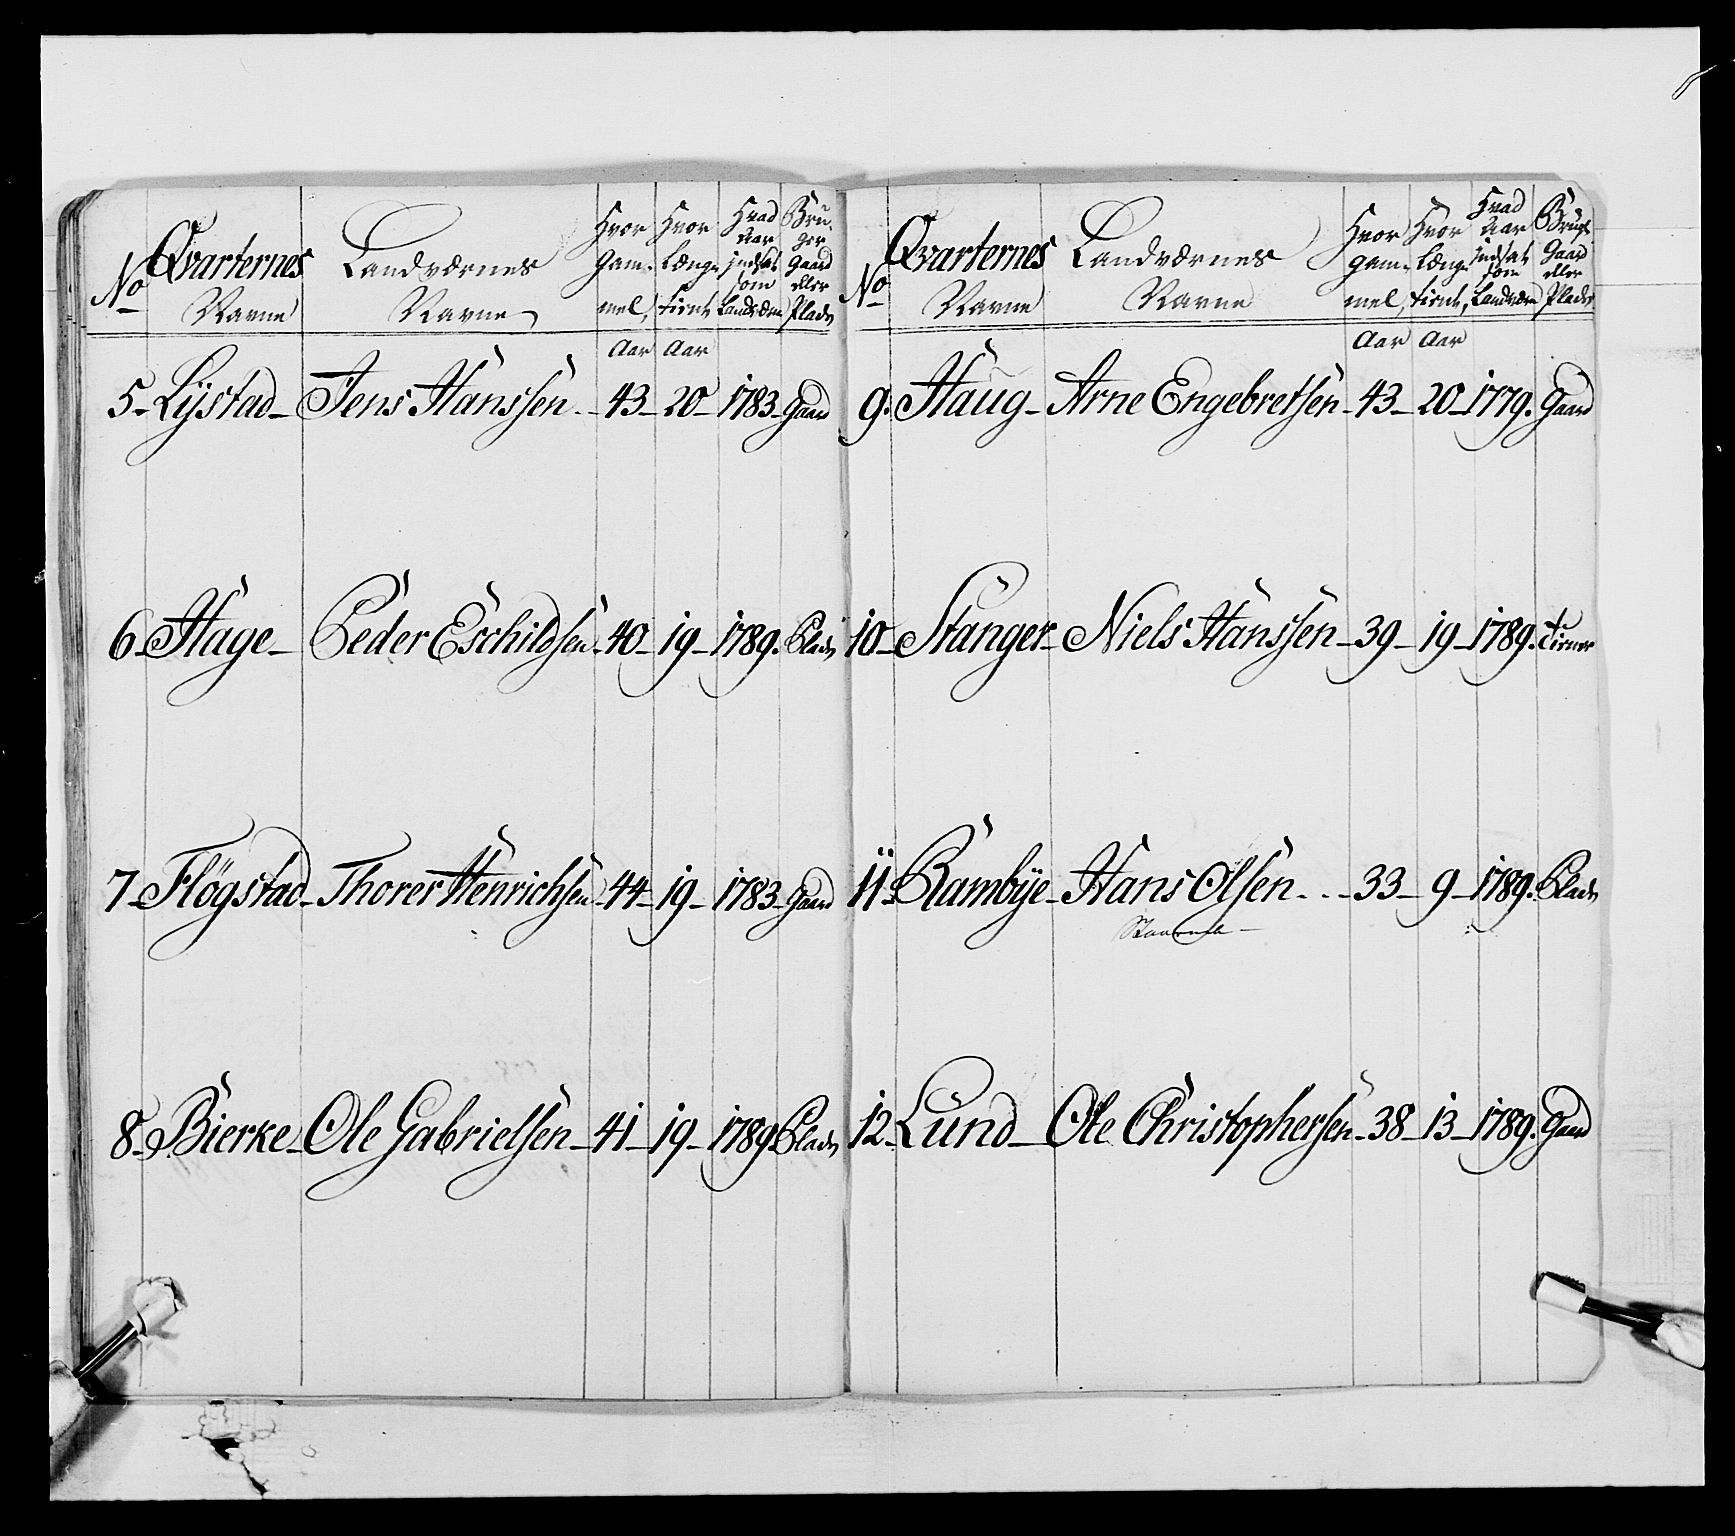 No Qvarternes Navne Landværnes Navne Hvor gammel, Hvor længe tient Hvad Aar indsat som Landværn Bruger Gaard eller Plads
Aar Aar
5 Lÿstad Jens Hanssen 43 20 1783 Gaard
6 Hage Peder Eschildsen 40 19 1789 Plads
7 Flögstad Thorer Henrichsen 44 19 1783 Gaard
8 Bierke Ole Gabrielsen 41 19 1789 Plads
No Qvarternes Navne Landværnes Navne Hvor gammel, Hvor længe tient, Hvad Aar indsat som Landværn Brug Gaard eller Plads
Aar Aar
9 Haug Arne Engebretsen 43 20 1779 Gaard
10 Stanger Niels Hanssen 39 19 1789 tiener
11 Rambÿe Hans Olsen 33 9 1789 Plads
12 Lund Ole Christophersen 38 13 1789 Gaard